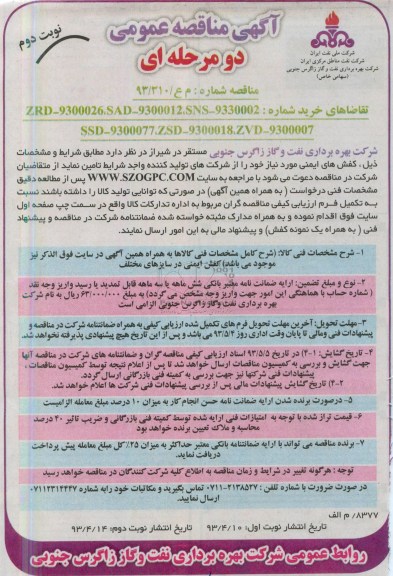 آگهی مناقصه عمومی
نوبت دوم
دو مرحله ای
شرکت ملی نفت ایران
شرکت نفت مناطق مرکزی ایران
شرکت بهره برداری نفت و گاز زاگرس جنوبی
(سهامی خاص)
مناقصه شماره : م ع/۹۳/۳۱۰
تقاضاهای خرید شماره : ZRD-9300026.SAD-9300012.SNS-9330002
SSD-9300077.ZSD-9300018.ZVD-9300007
شرکت بهره برداری نفت وگاز زاگرس جنوبی مستقر در شیراز در نظر دارد مطابق شرایط و مشخصات
ذیل ، کفش های ایمنی مورد نیاز خود را از شرکت های تولید کننده واجد شرایط تامین نماید از متقاضیان
شرکت در مناقصه دعوت می شود با مراجعه به سایت WWW.SZOGPC.COM پس از مطالعه دقیق
مشخصات فنی درخواست ( به همراه همین آگهی) در صورتی که توانایی تولید کالا را داشته باشند نسبت
به تکمیل فرم ارزیابی کیفی مناقصه گران مربوط به اداره تدارکات کالا واقع در سمت چپ صفحه اول
سایت فوق اقدام نموده و به همراه مدارک مثبته خواسته شده ضمانتنامه شرکت در مناقصه و پیشنهاد
فنی ( به همراه یک نمونه کفش) و پیشنهاد مالی به این امور ارسال نمایند.
۱- شرح مشخصات فنی کالا: (شرح کامل مشخصات فنی کالاها به همراه همین آگهی در سایت فوق الذکر نیز
موجود می باشد) کفش ایمنی در سایزهای مختلف
۲- نوع و مبلغ تضمین: ارایه ضمانت نامه معتبر بانکی شش ماهه یا سه ماهه قابل تمدید یا رسید واریز وجه نقد
( شماره حساب با هماهنگی این امور جهت واریز وجه مشخص می گردد) به مبلغ ۶۳/۰۰۰/۰۰۰ ریال به نام شرکت
بهره برداری نفت وگاز زاگرس جنوبی الزامی است
۳-مهلت تحویل: آخرین مهلت تحویل فرم های تکمیل شده ارزیابی کیفی به همراه ضمانتنامه شرکت در مناقصه و
پیشنهادات فنی ومالی تا پایان وقت اداری روز ۹۳/۵/۴ می باشد و پس از این تاریخ هیچ پیشنهادی پذیرفته نخواهد شد.
۴- تاریخ گشایش: ۱-۴) در تاریخ ۹۳/۵/۵ اسناد ارزیابی کیفی مناقصه گران و ضمانتنامه های شرکت در مناقصه آنها
جهت گشایش و بررسی به کمیسیون مناقصات ارسال خواهد شد تا پس از اعلام نتیجه توسط کمیسیون مناقصات ،
پیشنهادات فنی شرکتها نیز جهت بررسی به کمیته فنی بازرگانی ارسال گردد.
۲-۴) تاریخ گشایش پیشنهادات مالی پس از بررسی پیشنهادات فنی شرکت ها اعلام خواهد شد.
۵- درصورت برنده شدن ارایه ضمانت نامه حسن انجام کار به میزان ۱۰ درصد مبلغ معامله الزامیست
۶- قیمت تراز شده با توجه به امتیازات فنی ارایه شده توسط کمیته فنی بازرگانی و ضریب تاثیر ۲۰ درصد
محاسبه و ملاک تعیین برنده خواهد بود
۷- برنده مناقصه می تواند با ارایه ضمانتنامه بانکی معتبر حداکثر به میزان ۲۵٪ کل مبلغ معامله پیش پرداخت
دریافت نماید.
توجه : هرگونه تغییر در شرایط و زمان مناقصه به اطلاع کلیه شرکت کنندگان در مناقصه خواهد رسید
در صورت ضرورت با شماره تلفن : ۲۱۳۸۵۲۷-۰۷۱۱ تماس بگیرید و مکاتبات خود رابه شماره ۰۷۱۱۲۳۱۴۴۴۷
ارسال نمایید.
۸۳۷۷/ م الف
تاریخ انتشار نوبت اول: ۹۳/۴/۱۰ تاریخ انتشار نوبت دوم: ۹۳/۴/۱۴
روابط عمومی شرکت بهره برداری نفت وگاز زاگرس جنوبی